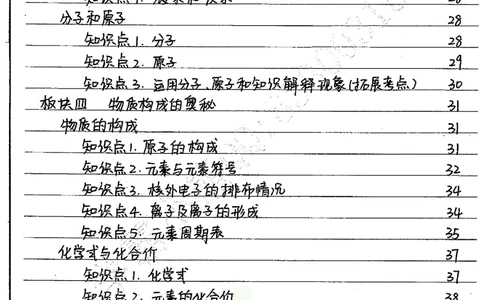 知识点1.
分子和原子 28
知识点1. 分子 28
知识点2. 原子 29
知识点3. 运用分子、原子和知识解释现象(拓展考点) 30
板块四 物质构成的奥秘 31
物质的构成 31
知识点1. 原子的构成 31
知识点2. 元素与元素符号 32
知识点3. 核外电子的排布情况 34
知识点4. 离子及离子的形成 34
知识点5. 元素周期表 35
化学式与化合价 37
知识点1. 化学式 37
知识点2. 元素的化合价 38